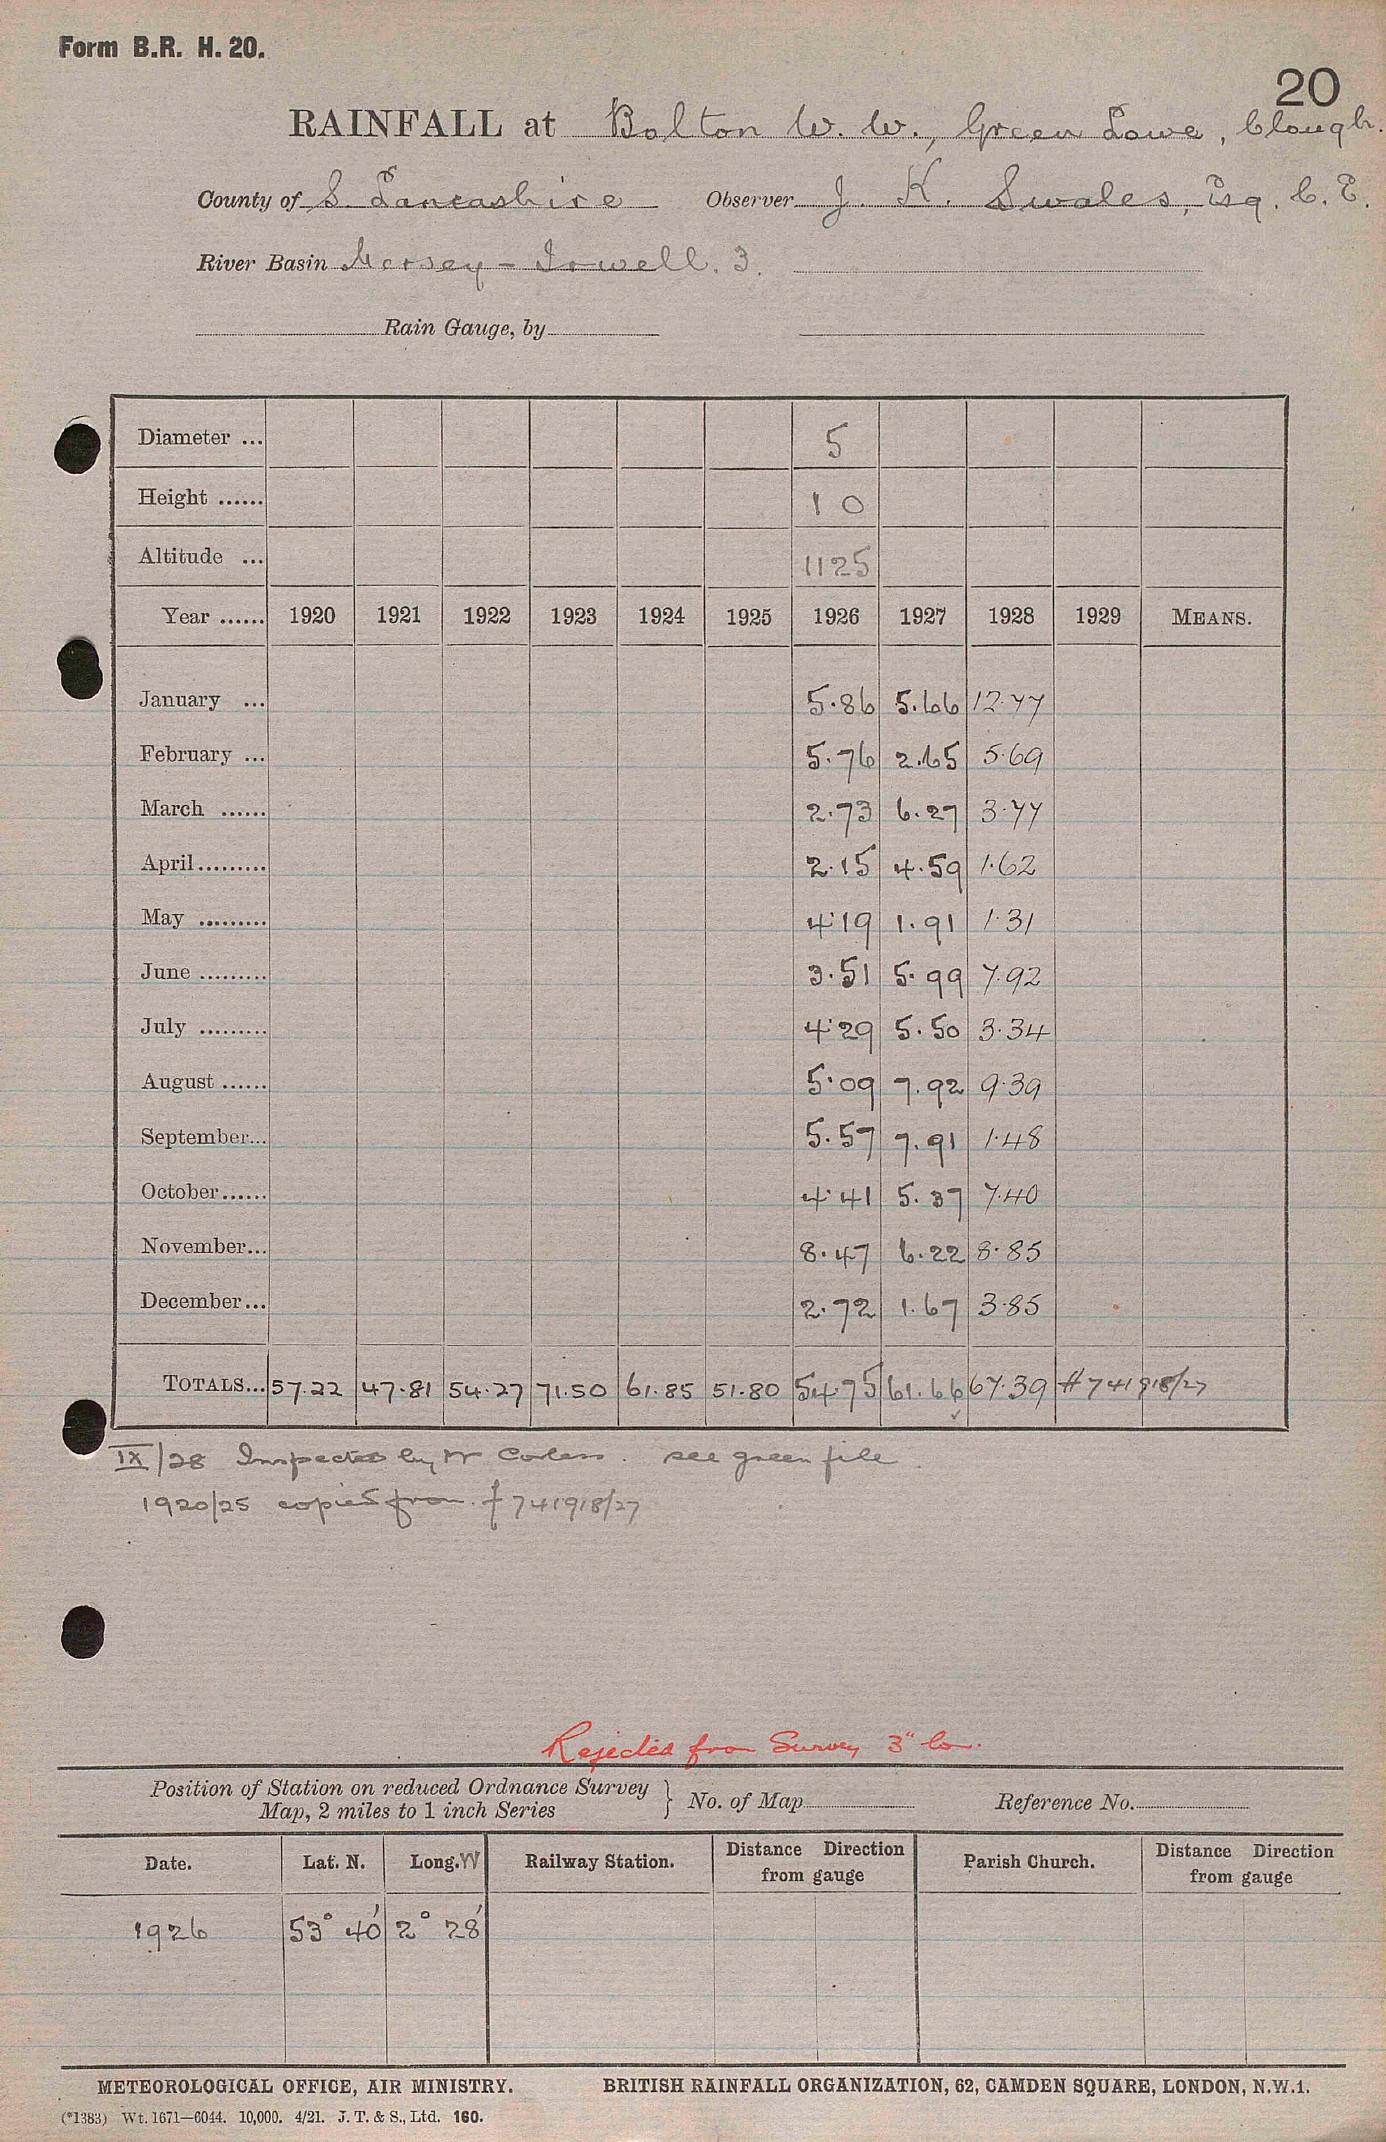 Form B.R. H. 20.
20
RAINFALL at Bolton W. W., Green Lowe, Clough.
County of S. Lancashire Observer J. K. Swales, Esq. C. E.
River Basin Mersey - Irwell. 3.
Rain Gauge, by
Diameter ... 5
Height ...... 1 0
Altitude ... 1125
Year ...... 1920 1921 1922 1923 1924 1925 1926 1927 1928 1929 MEANS.
January ... 5.86 5.66 12.77
February ... 5.76 2.65 5.69
March ...... 2.73 6.27 3.77
April ......... 2.15 4.59 1.62
May ......... 4.19 1.91 1.31
June ......... 3.51 5.99 7.92
July ......... 4.29 5.50 3.34
August ...... 5.09 7.92 9.39
September... 5.57 7.91 1.48
October ...... 4.41 5.37 7.40
November... 8.47 6.22 8.85
December... 2.72 1.67 3.85
TOTALS... 57.22 47.81 54.27 71.50 61.85 51.80 54.75 61.66 67.39 # 741918/27
IX/28 Inspected by Mr Corless. see green file.
1920/25 copied from f 741918/27
Rejected from Survey 3" low.
Position of Station on reduced Ordnance Survey
Map, 2 miles to 1 inch Series } No. of Map Reference No.
Date. Lat. N. Long. W Railway Station. Distance Direction from gauge Parish Church. Distance Direction from gauge
1926 53° 40' 2° 28'
METEOROLOGICAL OFFICE, AIR MINISTRY. BRITISH RAINFALL ORGANIZATION, 62, CAMDEN SQUARE, LONDON, N.W.1.
(*1383) Wt. 1671—6044. 10,000. 4/21. J. T. & S., Ltd. 160.